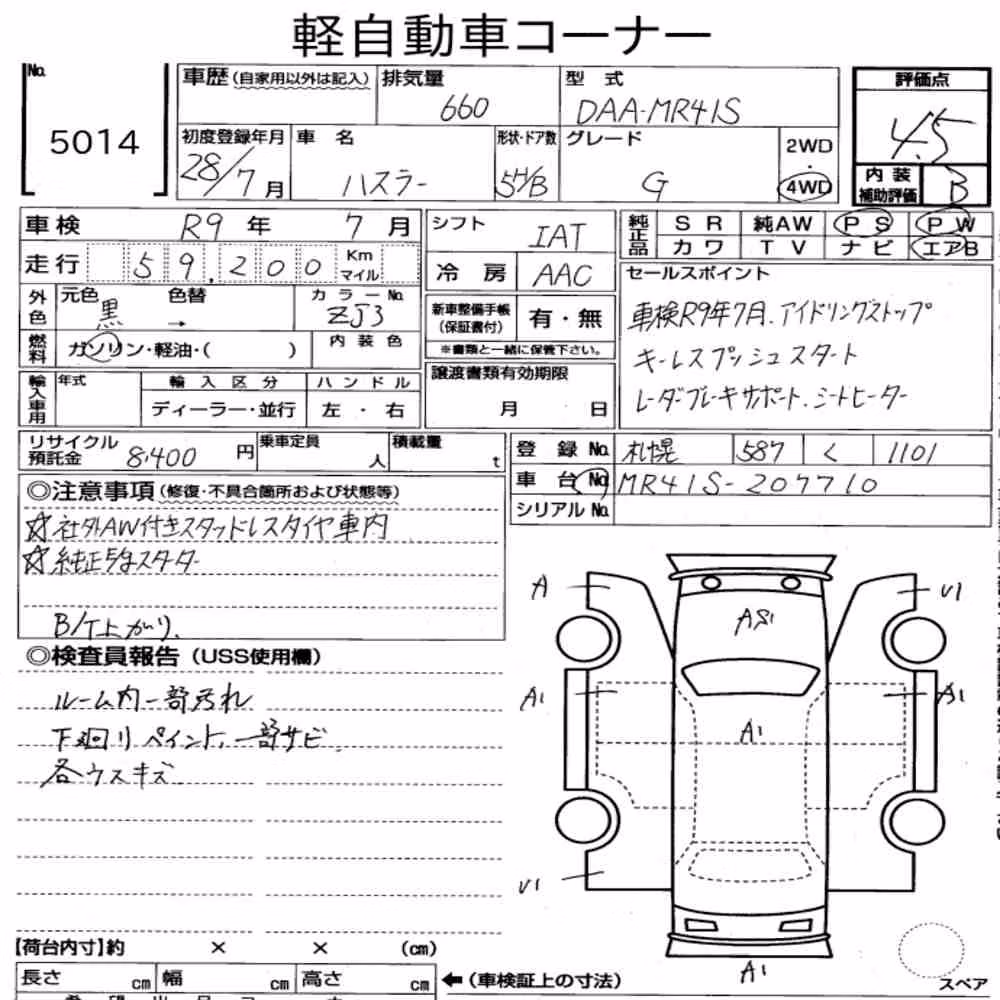 軽自動車コーナー
No.
5014
車歴(自家用以外は記入)
排気量
660
型 式
DAA-MR41S
評価点
4.5
内装
補助評価
B
初度登録年月
28/7月
車 名
ハスラー
形状・ドア数
5H/B
グレード
G
2WD
・
4WD
車検 R9年 7月
走行 59,200 Km
マイル
シフト IAT
冷房 AAC
純正品
SR 純AW PS PW
カワ TV ナビ エアB
外色
元色 黒
色替 →
カラーNo.
ZJ3
燃料
ガソリン・軽油・( )
内装色
新車整備手帳
(保証書付)
有・無
※書類と一緒に保管下さい。
セールスポイント
車検R9年7月、アイドリングストップ
キーレスプッシュスタート
レーダーブレーキサポート、シートヒーター
輸入車用
年式
輸入区分
ディーラー・並行
ハンドル
左 ・ 右
譲渡書類有効期限
月 日
リサイクル
預託金
8,400 円
乗車定員
人
積載量
t
登録No. 札幌 587 く 1101
車台No. MR41S-207710
シリアルNo.
◎注意事項(修復・不具合箇所および状態等)
☆社外AW付きスタッドレスタイヤ車内
☆純正スターター
B/T上がり
◎検査員報告(USS使用欄)
ルーム内一部汚れ
下廻りペイント、一部サビ
各ウスキズ
A
U1
AS1
A1
A1
A1
U1
A1
スペア
【荷台内寸】約 × × (cm)
長さ cm 幅 cm 高さ cm
←(車検証上の寸法)